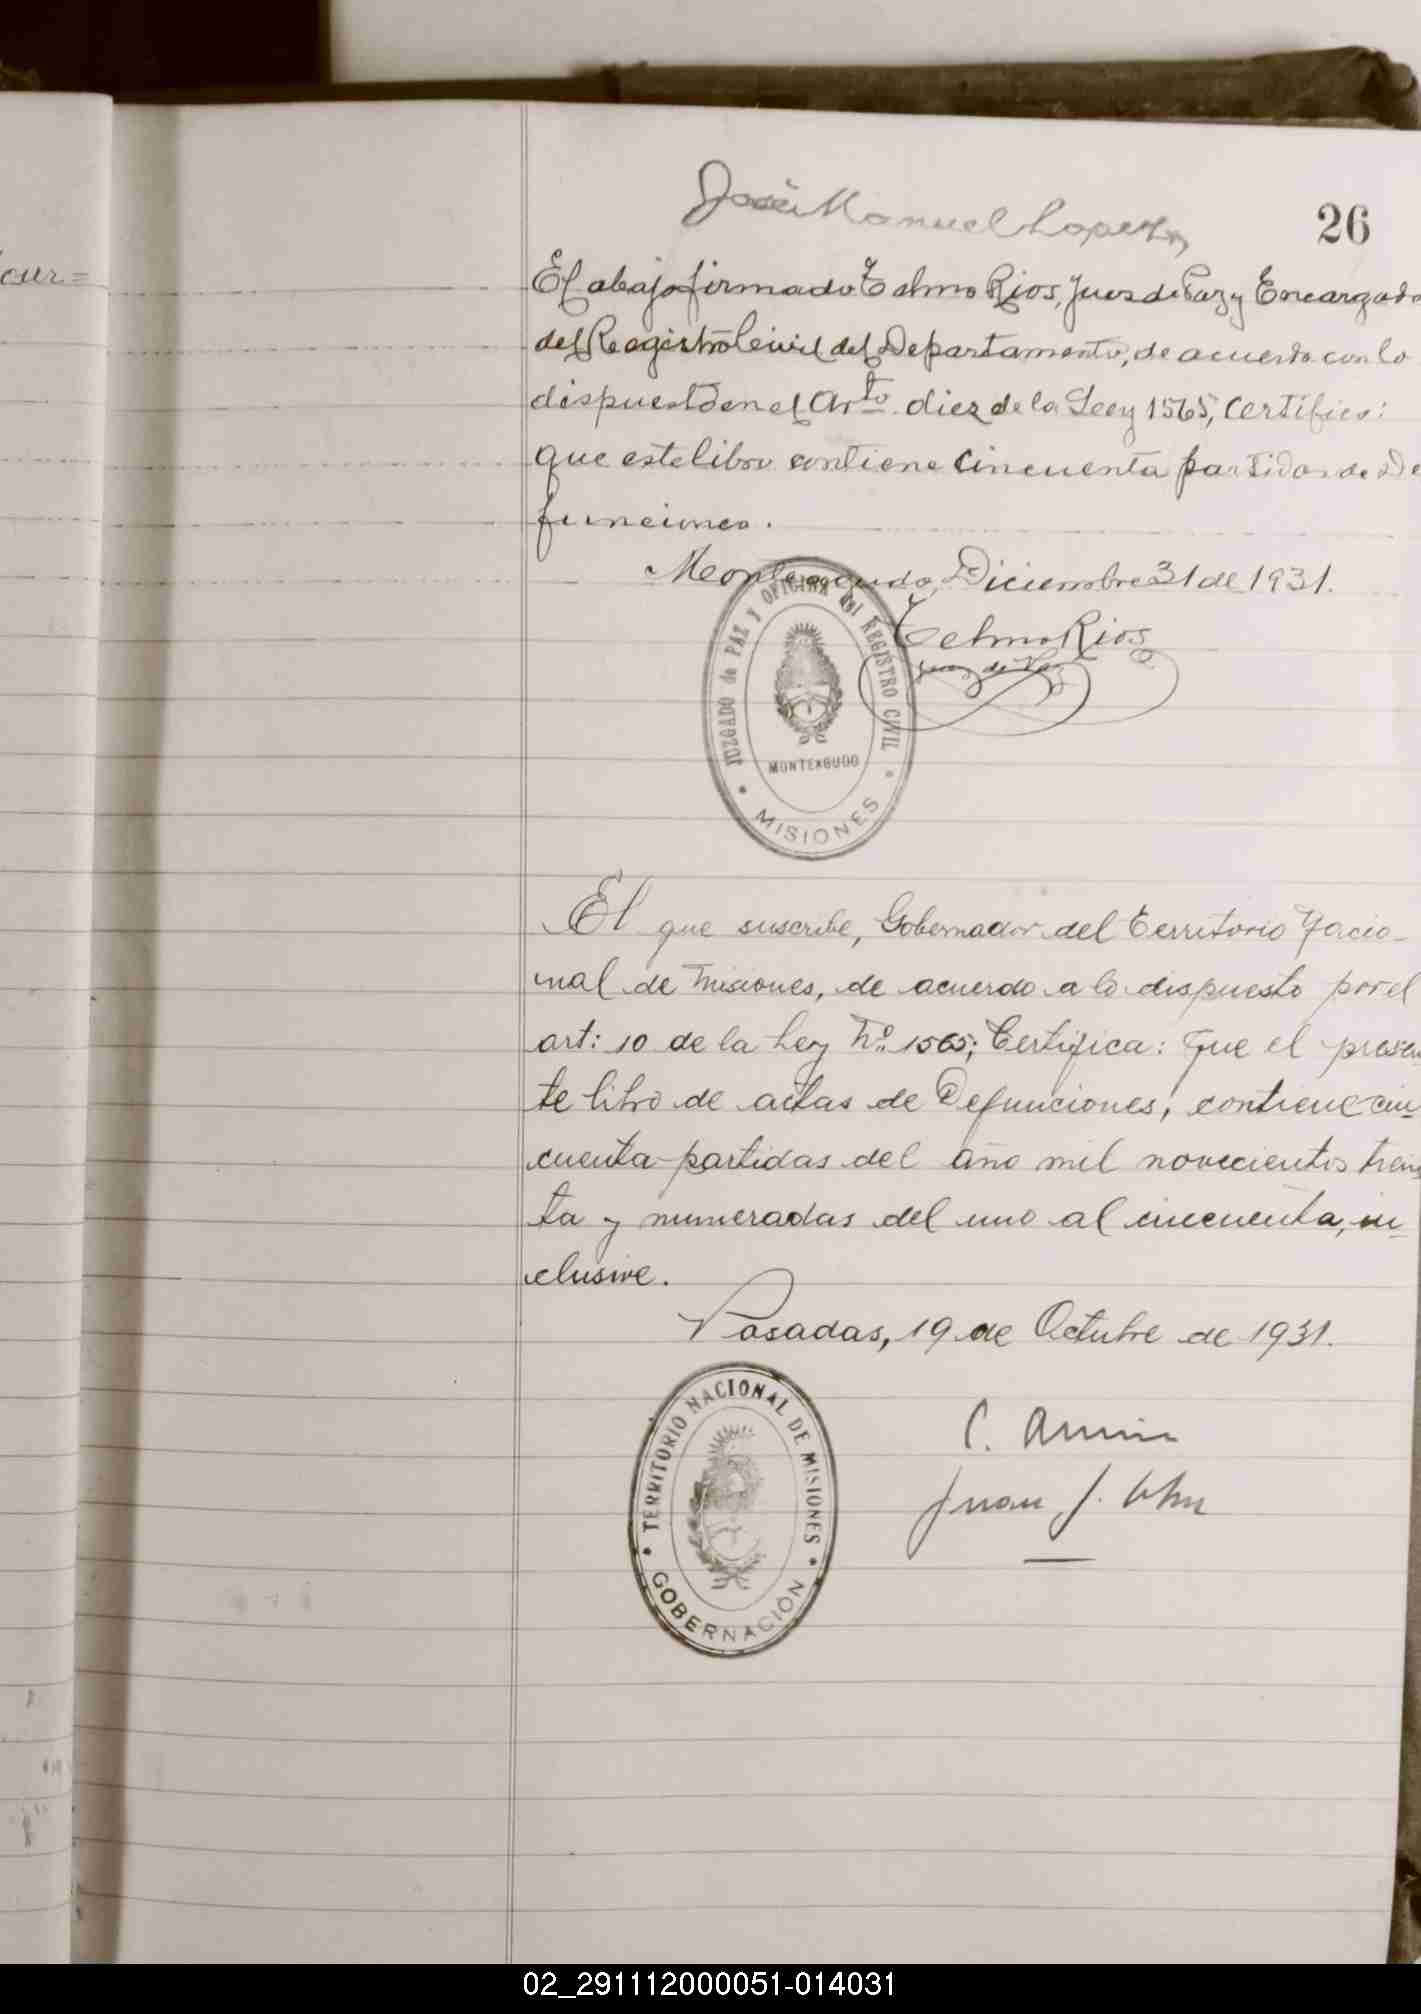 José Manuel Lopez
26
cur=
El abajo firmado Telmo Rios, Juez de Paz y Encargado
del Registro Civil del Departamento, de acuerdo con lo
dispuesto en el Arto. diez de la Ley 1565, Certifico:
que este libro contiene cincuenta partidas de De
funciones.
Monteagudo, Diciembre 31 de 1931.
Telmo Rios
Juez de Paz
JUZGADO de PAZ Y OFICINA del REGISTRO CIVIL
MONTEAGUDO
MISIONES
El que suscribe, Gobernador del Territorio Nacio-
nal de Misiones, de acuerdo a lo dispuesto por el
art: 10 de la Ley No. 1565; Certifica: Que el presen
te libro de actas de Defunciones, contiene cin-
cuenta partidas del año mil novecientos trein
ta y numeradas del uno al cincuenta, in-
clusive.
Posadas, 19 de Octubre de 1931.
TERRITORIO NACIONAL DE MISIONES
GOBERNACIÓN
C.
Juan J.
02_291112000051-014031